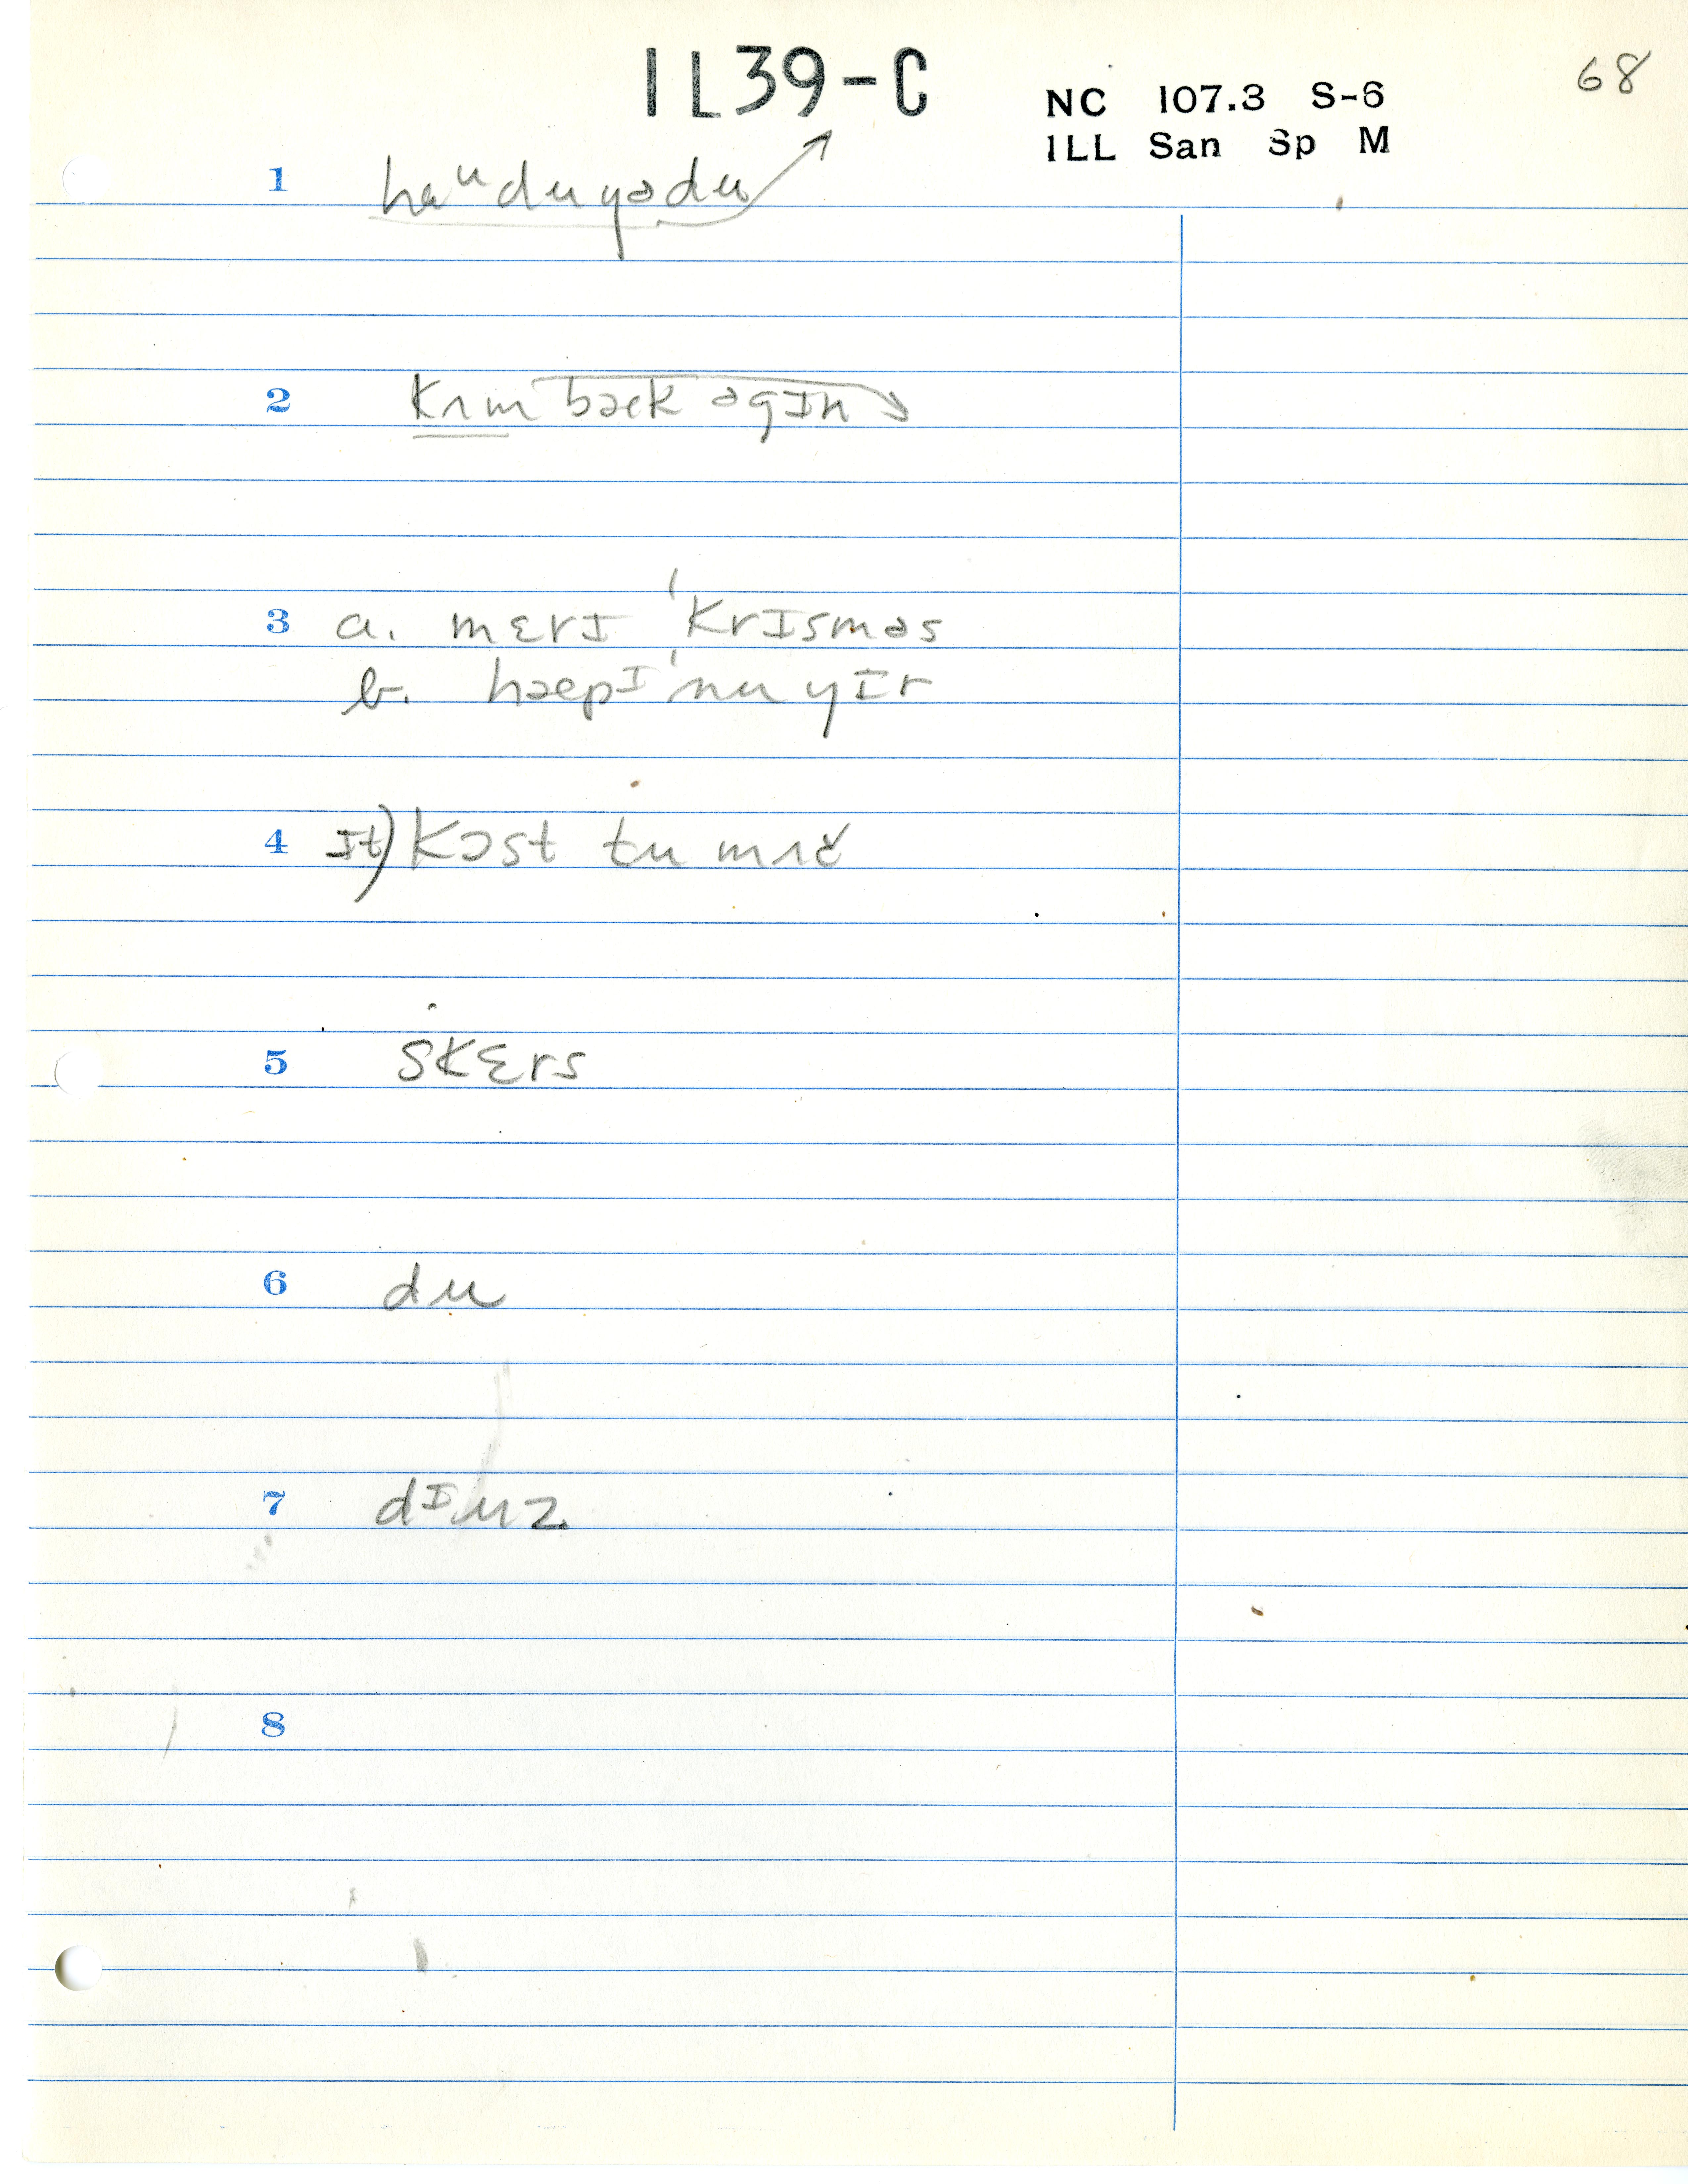 1L39-C
NC 107.3 S-6
ILL San Sp M
68
1 haᵘ du yə du
2 kʌm bæk əgɪn
3 a. mɛrɪ ˈkrɪsməs
b. hæpɪ ˈnu yɪr
4 ɪt) kɔst tu mʌč
5 skɛrs
6 du
7 dᴵuz
8